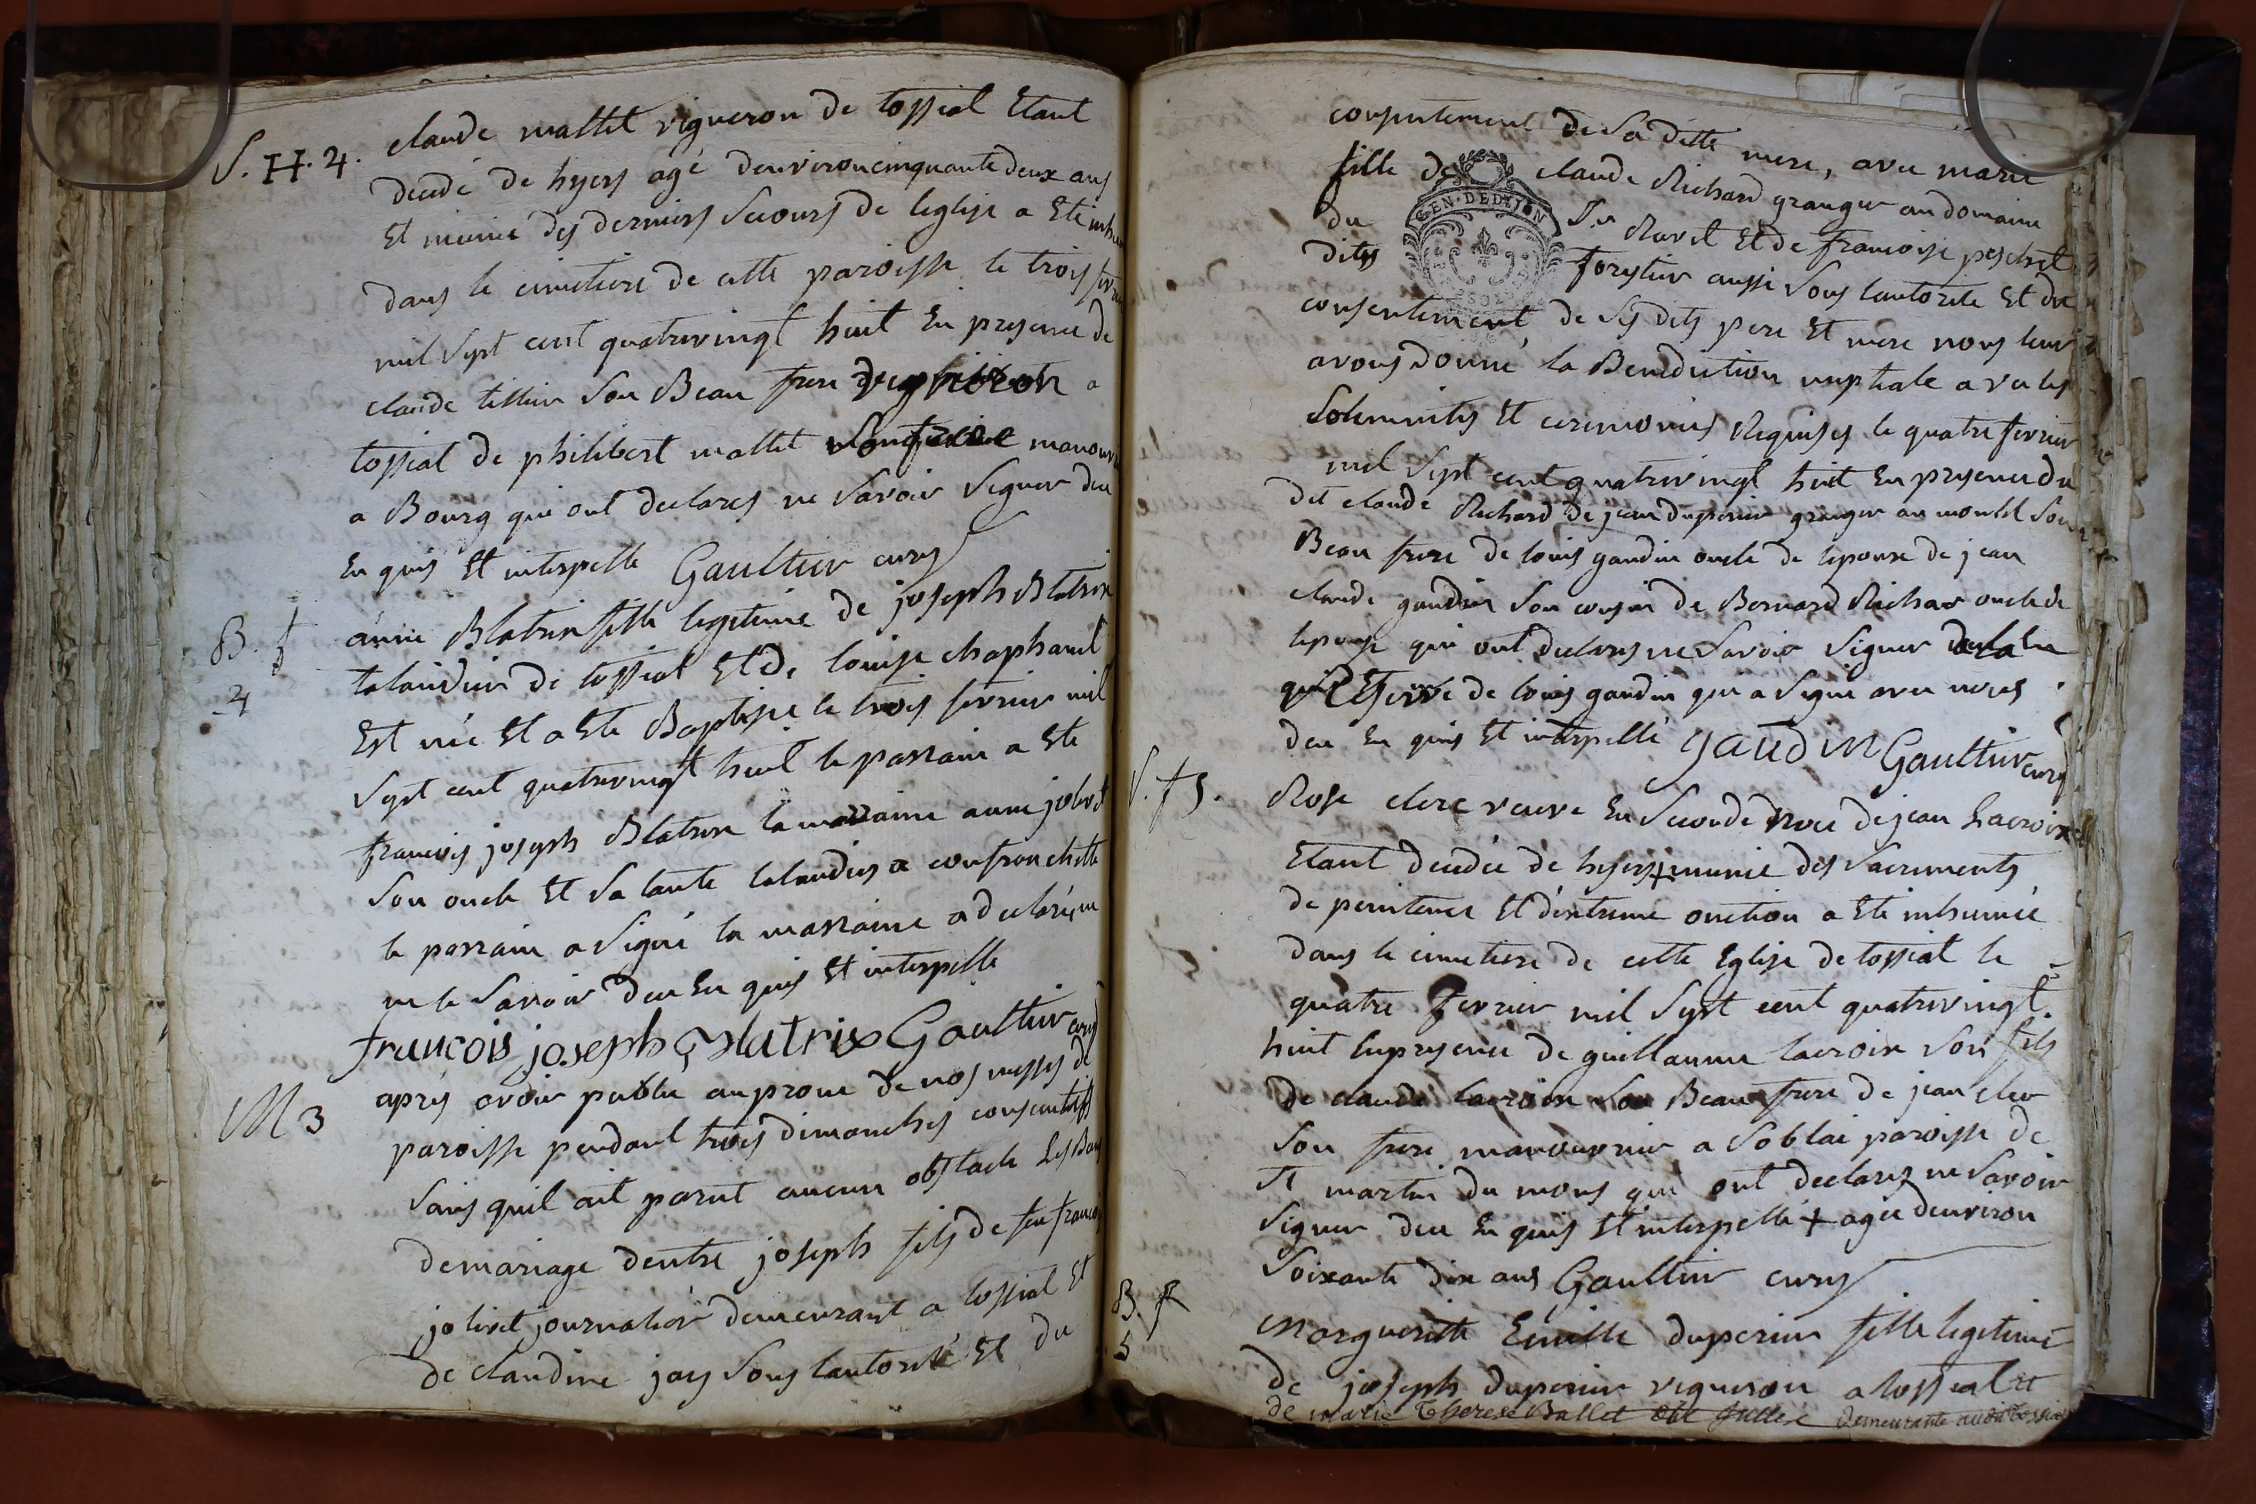 S. H. 4.
claude mallet vigneron de tossiat Etant
decedé de hyers agé denviron cinquante deux ans
Et munie des derniers secours de leglise a Ete inhu
dans le cimetiere de cette paroisse le trois fev
mil sept cent quatrevingt huit En presence de
claude tissier son Beau frere vigneron a
tossiat de philibert mallet son frere manouvr
a Bourg qui ont declarés ne savoir signer deu
En quis Et interpelle Gaultier curé
B. f
4
anne Blatrix fille legitime de joseph Blatrix
talandier de tossiat Et de louise chaphanel
Est née Et a Ete Baptisée le trois fevrier mil
sept cent quatrevingt huit le parrain a Ete
francois joseph Blatrix la marraine anne jolivet
son oncle Et sa tante talandiers a confranchette
le parrain a signé la marraine a declaré
ne le savoir deu En quis Et interpelle
francois joseph Blatrix Gaultier curé
M 3
aprés avoir publié au prone de nos messes de
paroisse pendant trois dimanches consecutifs
sans quil ait parut aucun obstacle Les Bans
de mariage dentre joseph fils de feu francois
jolivet journalier demeurant a tossiat Et
de claudine jay sous lautorité Et du
consentement de sa ditte mere, avec marie
fille de claude Richard granger au domaine
du Sr Ravet Et de francoise peschet
dites forestier aussi sous lautorite Et du
GEN. DE DIJON
consentement de ses dits pere Et mere nous leur
avons donné la Benediction nuptiale avec les
solemnités Et ceremonies Requises le quatre fevrier
mil sept cent quatrevingt huit En presence du
dit claude Richard de jean duperier granger au montel son
Beau frere de louis gaudin oncle de lepoux de jean
claude gaudin son cousin de Bernard Richar oncle de
lepouse qui ont declarés ne savoir signer
de louis gaudin qui a signé avec nous
deu En quis Et interpellé gaudin Gaultier curé
S. f 5.
Rose clerc veuve En seconde noce de jean Lacroix
Etant decedée de hyers + munie des sacrements
de penitence Et dextreme onction a Eté inhumée
dans le cimetiere de cette Eglise de tossiat le
quatre fevrier mil sept cent quatrevingt
huit En presence de guillaume lacroix son fils
de claude lacroix son Beau frere de jean clerc
son frere manouvrier a soblai paroisse de
st martin du mons qui ont declarés ne savoir
signer deu En quis Et interpellé + agée denviron
soixante dix ans Gaultier curé
B. f
5
Margueritte Emille duperier fille legitime
de joseph duperier vigneron a tossiat et
de marie Therese Ballet demeurante audit tossiat